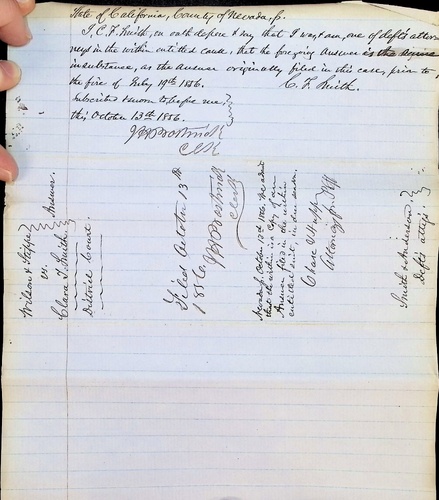 State of California, County of Nevada, ss.
I, C. F. Smith, on oath depose & say that I was, & am, one of defts attor-
neys in the within entitled cause, that the foregoing answer is the
in substance, as the answer originally filed in this case, prior to
the fire of July 19th 1856.
C. F. Smith.
Subscribed & sworn to before me,
this October 13th 1856.
Clk
Answer.
vs.
Clara F. Smith
District Court.
Filed October 13th
1856.
Clerk
Nevada, October 13th 1856. We admit
that the within is a Copy of an
Answer filed in the within
entitled suit,
Attorneys
Smith & Anderson,
Defts attys.